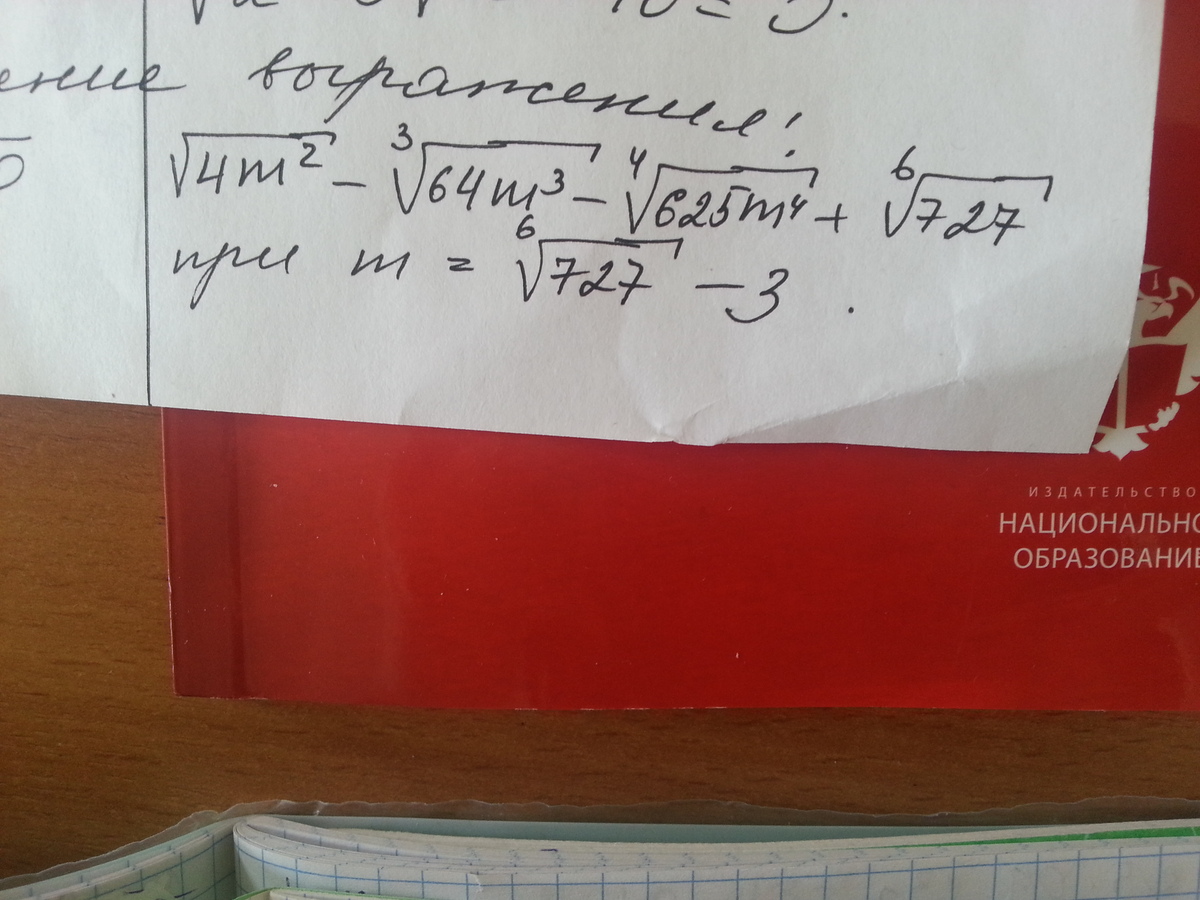 выражения!
√4m² - ∛64m³ - ∜625m⁴ + ⁶√727
при m = ⁶√727 - 3.
ИЗДАТЕЛЬСТВО
НАЦИОНАЛЬНО
ОБРАЗОВАНИЕ